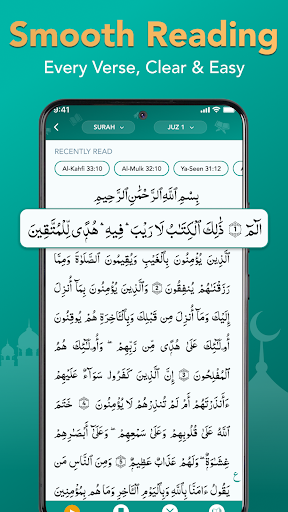 Smooth Reading
Every Verse, Clear & Easy
9:41
SURAH
JUZ 1
RECENTLY READ
Al-Kahfi 33:10
Al-Mulk 32:10
Ya-Seen 31:12
A
بِسْمِ ٱللَّهِ ٱلرَّحْمَٰنِ ٱلرَّحِيمِ
الٓمٓ ۝١ ذَٰلِكَ ٱلْكِتَٰبُ لَا رَيْبَ ۛ فِيهِ ۛ هُدًى لِّلْمُتَّقِينَ
ٱلَّذِينَ يُؤْمِنُونَ بِٱلْغَيْبِ وَيُقِيمُونَ ٱلصَّلَوٰةَ وَمِمَّا
رَزَقْنَٰهُمْ يُنفِقُونَ ۝٢ وَٱلَّذِينَ يُؤْمِنُونَ بِمَآ أُنزِلَ
إِلَيْكَ وَمَآ أُنزِلَ مِن قَبْلِكَ وَبِٱلْءَاخِرَةِ هُمْ يُوقِنُونَ
أُو۟لَٰٓئِكَ عَلَىٰ هُدًى مِّن رَّبِّهِمْ ۖ وَأُو۟لَٰٓئِكَ هُمُ
ٱلْمُفْلِحُونَ ۝٣ إِنَّ ٱلَّذِينَ كَفَرُوا۟ سَوَآءٌ عَلَيْهِمْ
ءَأَنذَرْتَهُمْ أَمْ لَمْ تُنذِرْهُمْ لَا يُؤْمِنُونَ ۝٤ خَتَمَ
ٱللَّهُ عَلَىٰ قُلُوبِهِمْ وَعَلَىٰ سَمْعِهِمْ ۖ وَعَلَىٰٓ أَبْصَٰرِهِمْ
غِشَٰوَةٌ ۖ وَلَهُمْ عَذَابٌ عَظِيمٌ ۝٥ وَمِنَ ٱلنَّاسِ مَن
يَقُولُ ءَامَنَّا بِٱللَّهِ وَبِٱلْيَوْمِ ٱلْءَاخِرِ وَمَا هُم بِمُؤْمِنِينَ